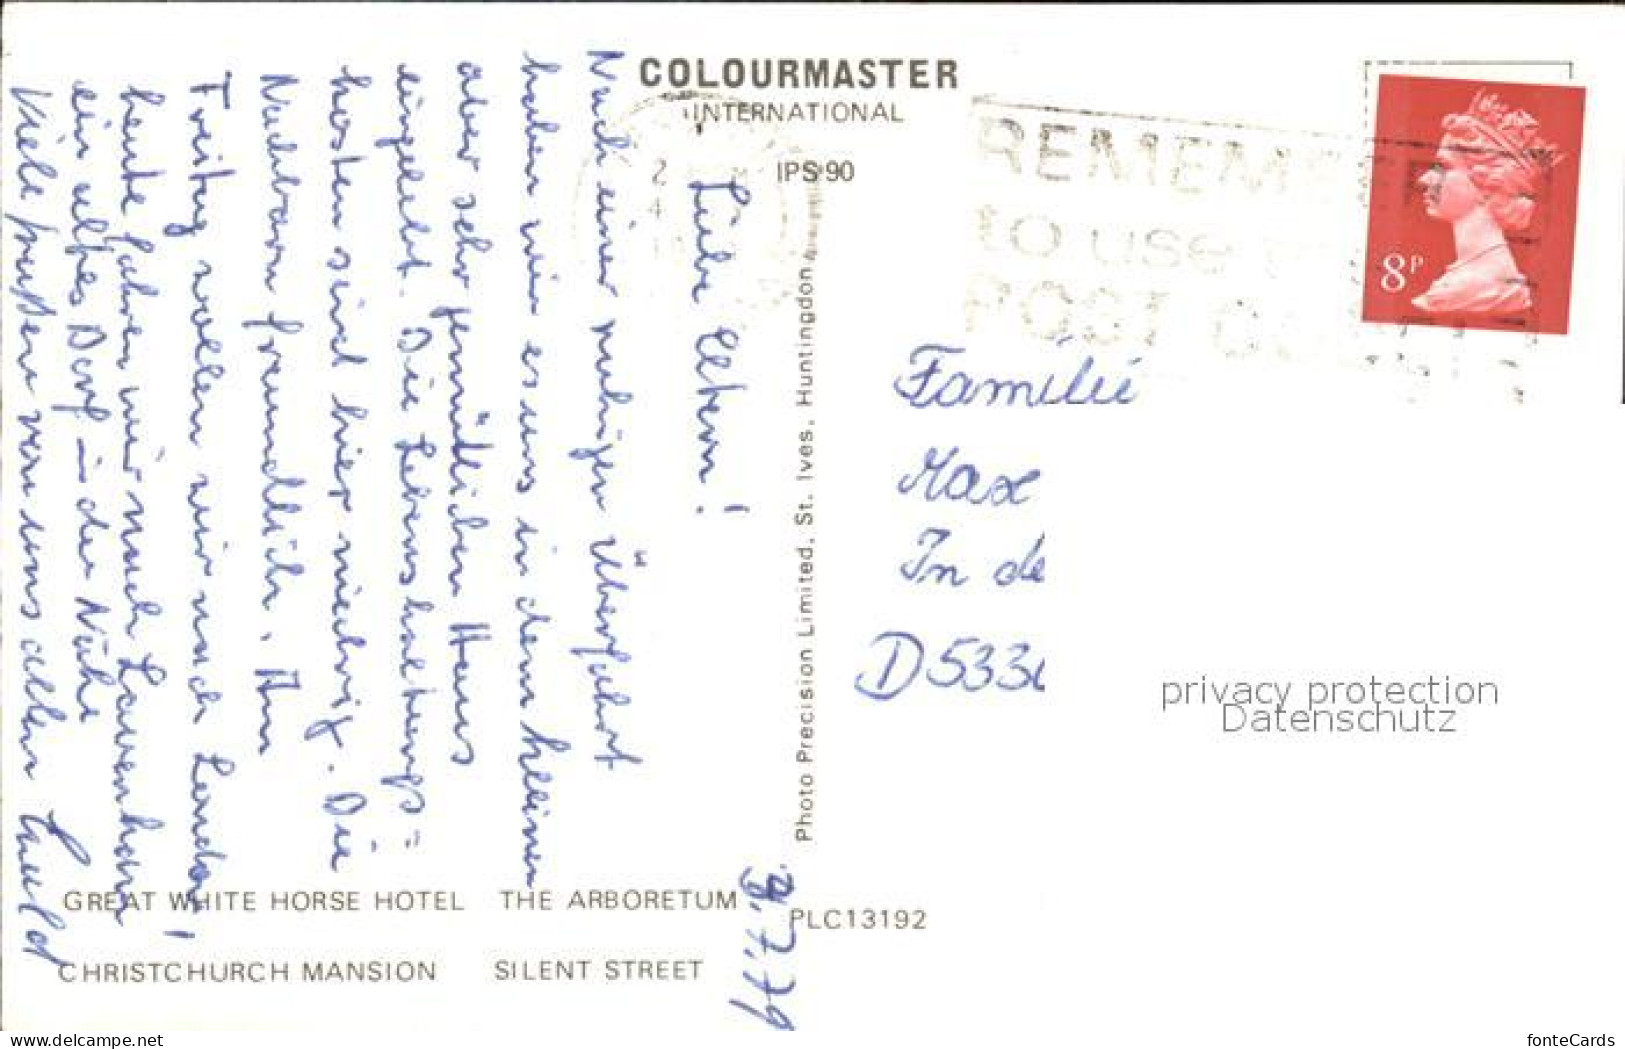 COLOURMASTER
INTERNATIONAL
IPS 90
REMEM
to use
POST CO
8P
9.7.79
Liebe Eltern!
Nach einer ruhigen Überfahrt
haben wir es uns in dem kleinen
aber sehr gemütlichen Haus
eingelebt. Die Lebenshaltungs=
kosten sind hier niedrig. Die
Nachbarn freundlich. Am
Freitag wollen wir nach London!
heute fahren wir nach Lavenham
ein altes Dorf in der Nähe
Viele Grüße von uns allen
Photo Precision Limited, St. Ives, Huntingdon
Familie
Max
In de
D 533
privacy protection
Datenschutz
GREAT WHITE HORSE HOTEL THE ARBORETUM
PLC13192
CHRISTCHURCH MANSION SILENT STREET
www.delcampe.net
fonteCards